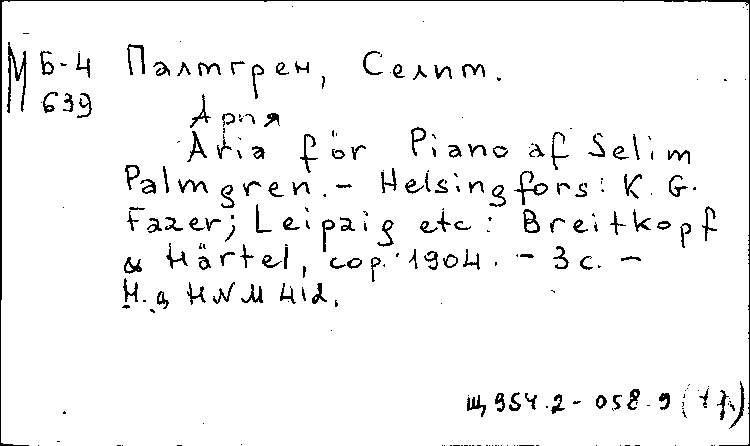 М Б-4 Палмгрен, Селим.
639
Ария
Aria för Piano af Selim
Palmgren. - Helsingfors: K. G.
Fazer; Leipzig etc: Breitkopf
& Härtel, cop. 1904. - 3 с. -
Н. д. HNM 412.
Щ954.2-058.9